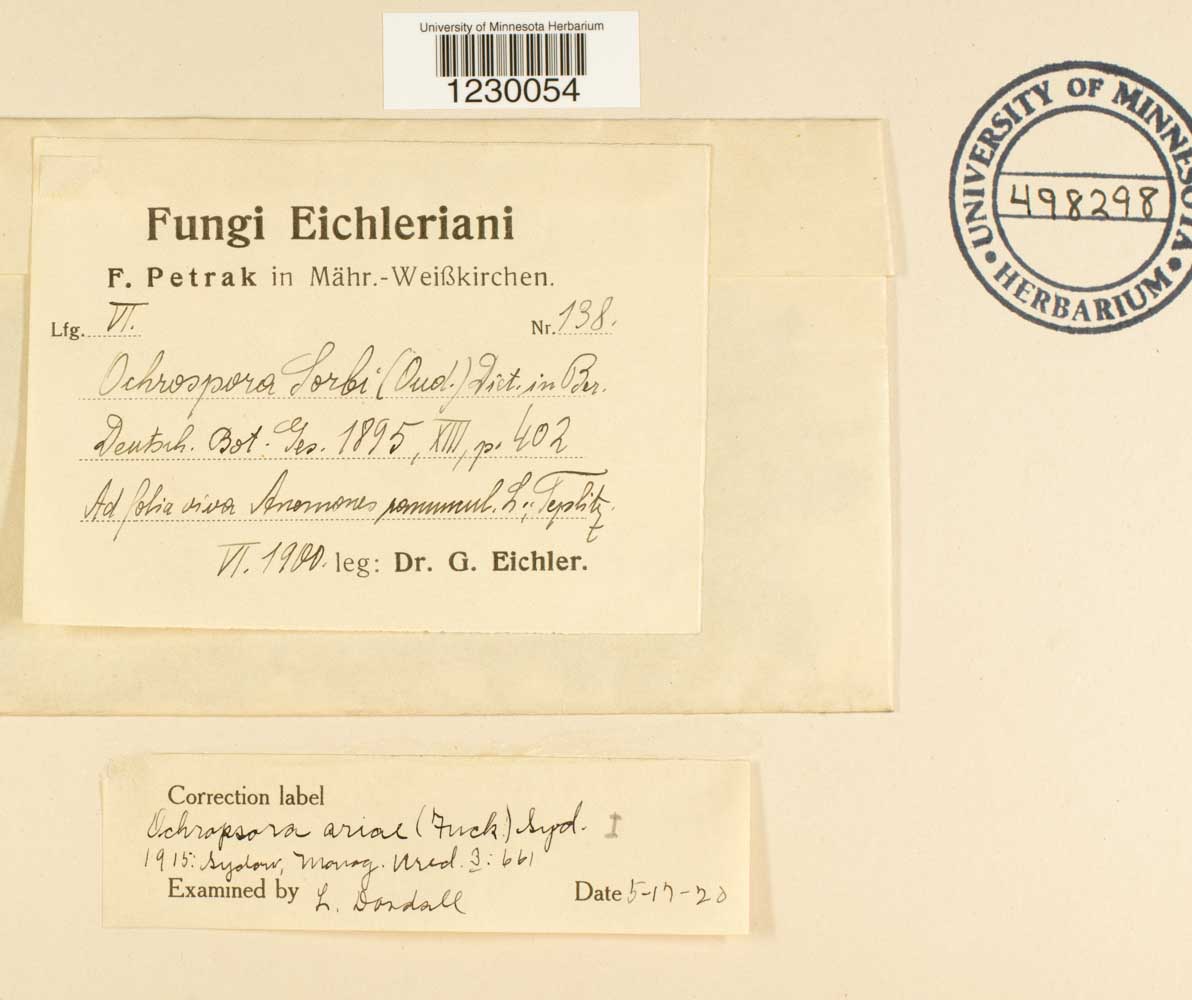 University of Minnesota Herbarium
1230054
UNIVERSITY OF MINNESOTA
498298
HERBARIUM
Fungi Eichleriani
F. Petrak in Mähr.-Weißkirchen.
Lfg. VI. Nr. 138.
Ochrospora Sorbi (Oud.) Diet. in Ber.
Deutsch. Bot. Ges. 1895, XIII, p. 402
Ad folia viva Anemones ranuncul. L.; Teplitz.
VI. 1900. leg: Dr. G. Eichler.
Correction label
Ochropsora ariae (Fuck.) Syd. I
1915: Sydow, Monog. Ured. 3: 661
Examined by L. Dosdall Date 5-17-20